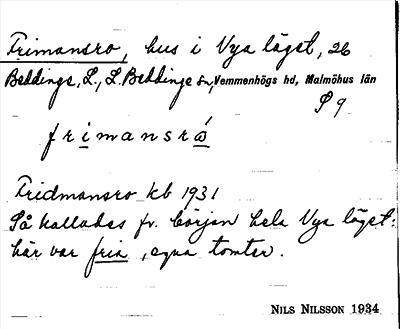 Frimansro, hus i Nya läget, 26
Beddinge, L., L. Beddinge sn, Vemmenhögs hd, Malmöhus län
S 9
frimansrå
Fridmansro kb 1931
Så kallades fr. början hela Nya läget:
här var fria, egna tomter.
NILS NILSSON 1934